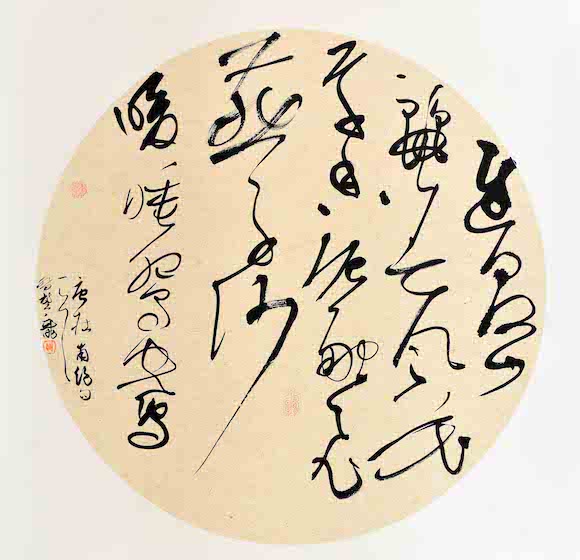 遲日江山
麗春風花
草香泥融飛
燕子沙
暖睡鴛鴦
唐杜甫絶句